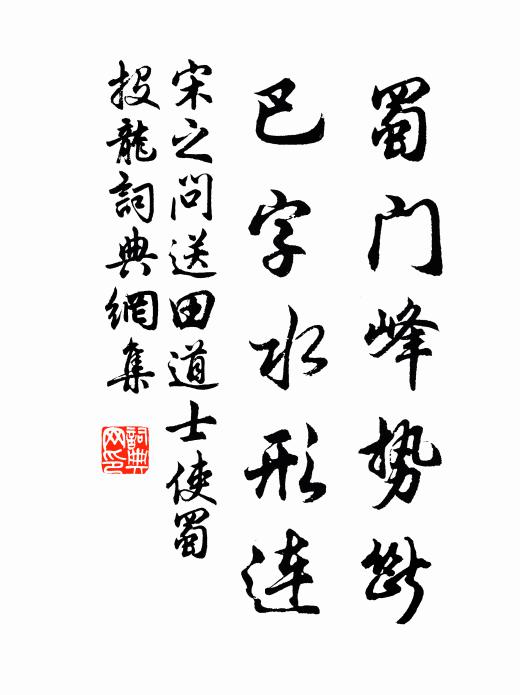 蜀门峰势断
巴字水形连
宋之问送田道士使蜀
投龍詞典網集
詞典
网印